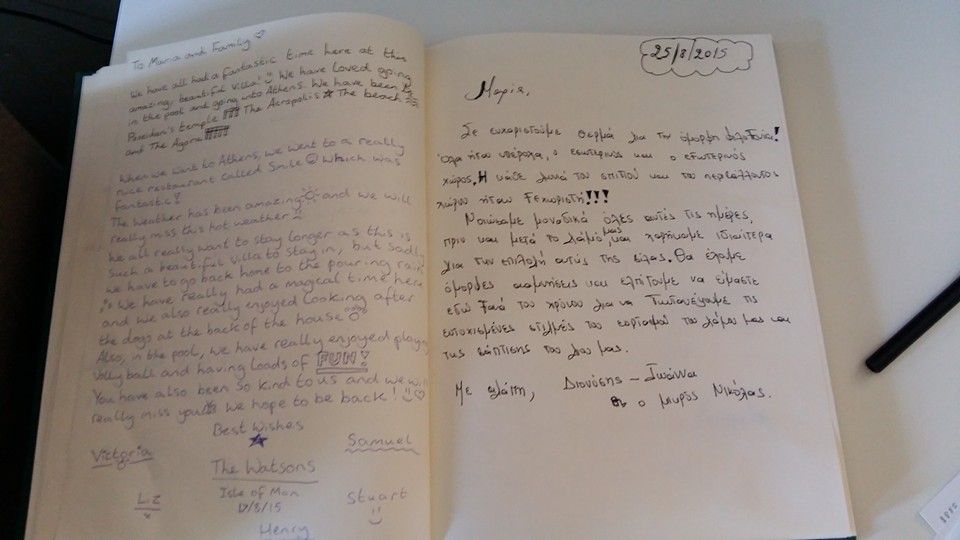 To Maria and Family ♡
We have all had a fantastic time here at this
amazing, beautiful villa! We have loved going
in the pool and going into Athens. We have been
Poseidon's temple The Acropolis The beach
and The Agora
When we went to Athens, we went to a really
nice restaurant called Smile Which was
fantastic!
The weather has been amazing and we will
really miss this hot weather
We all really want to stay longer as this is
such a beautiful villa to stay in, but sadly
we have to go back home to the pouring rain
We have really had a magical time here
and we also really enjoyed looking after
the dogs at the back of the house
Also, in the pool, we have really enjoyed playing
volley ball and having loads of FUN!
You have also been so kind to us and we will
really miss you We hope to be back!
Best Wishes
Victoria
Samuel
The Watsons
Isle of Man
Liz
x
Stuart
Henry
25/8/2015
Μαρία,
Σε ευχαριστούμε θερμά για την όμορφη φιλοξενία!
Όλα ήταν υπέροχα, ο εσωτερικός και ο εξωτερικός
χώρος. Η κάθε γωνιά του σπιτιού και του περιβάλλοντος
χώρου ήταν ξεχωριστή!!!
Νοιώσαμε μοναδικά όλες αυτές τις ημέρες,
πριν και μετά το γάμο μας και χαρήκαμε ιδιαίτερα
για την επιλογή αυτής της βίλας. Θα έχουμε
όμορφες αναμνήσεις και ελπίζουμε να είμαστε
εδώ ξανά του χρόνου για να τις
ευτυχισμένες στιγμές του εορτασμού του γάμου μας και
της βάπτισης του γιου μας.
Με αγάπη, Διονύσης - Ιωάννα
ο μικρός Νικόλας.